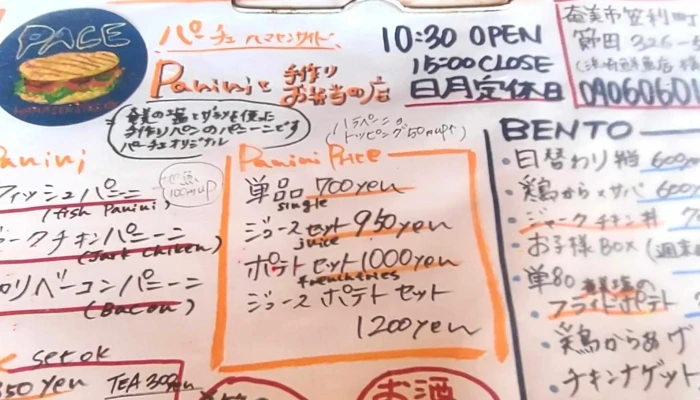 PACE
パーチェ ハマサンサイド
Paniniと手作りお弁当の店
10:30 OPEN
15:00 CLOSE
日月定休日
奄美市笠利町
節田 326-
0906060
奄美の塩とザラメを使った
手作りパンのパニーニです
パーチェオリジナル
ハラペーニョ
トッピング50円up↑
Panini
100円up
フィッシュパニーニ
(fish Panini)
ークチキンパニーニ
(Jark chiken)
ロリベーコンパニーニ
(Bacon)
set ok
350 yen
TEA 300yen
Panini Price
単品 700yen
single
ジュースセット 950yen
juice
ポテトセット 1000yen
frenchfries
ジュース ポテト セット
1200yen
お酒
BENTO
・日替わり弁当 600
・鶏からxサバ 600
・ジャークチキン丼
・お子様BOX (週末
・単80 奄美塩の
フライドポテト
・鶏からあげ
・チキンナゲット